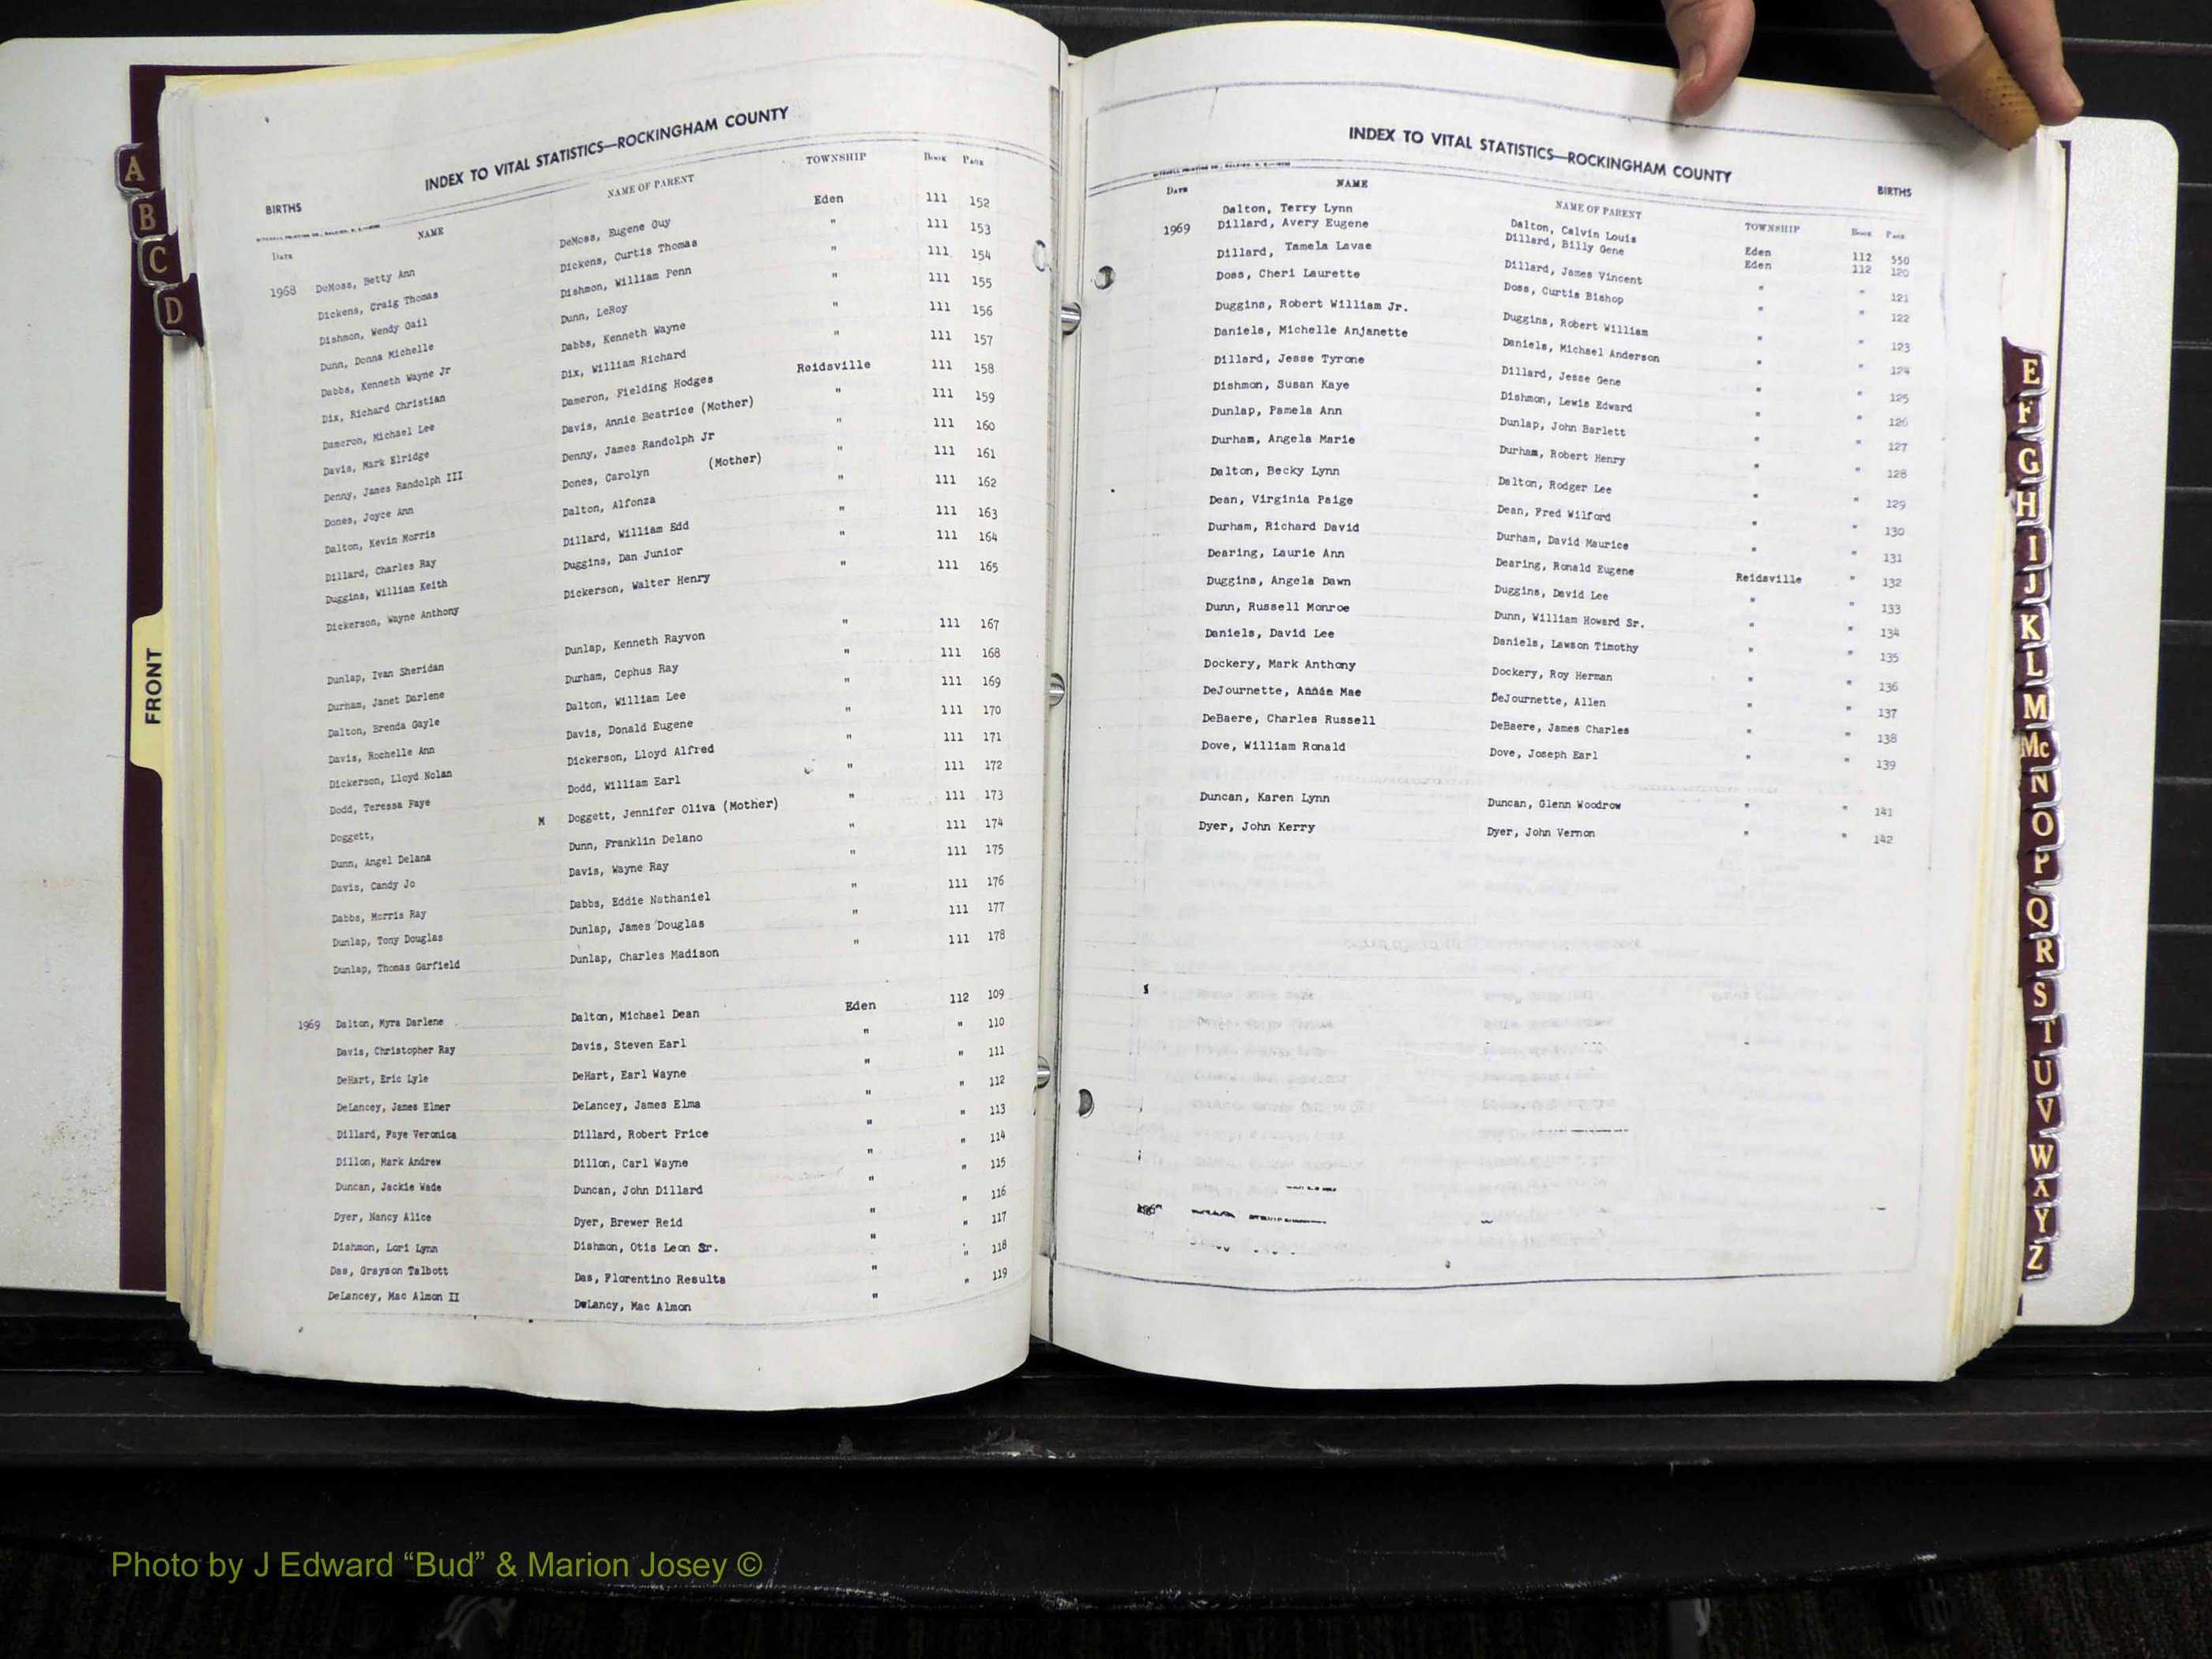 INDEX TO VITAL STATISTICS—ROCKINGHAM COUNTY
BIRTHS
DATE NAME NAME OF PARENT TOWNSHIP BOOK PAGE
1968 DeMoss, Betty Ann DeMoss, Eugene Guy Eden 111 152
Dickens, Craig Thomas Dickens, Curtis Thomas " 111 153
Dishmon, Wendy Gail Dishmon, William Penn " 111 154
Dunn, Donna Michelle Dunn, LeRoy " 111 155
Dabbs, Kenneth Wayne Jr Dabbs, Kenneth Wayne " 111 156
Dix, Richard Christian Dix, William Richard " 111 157
Dameron, Michael Lee Dameron, Fielding Hodges Reidsville 111 158
Davis, Mark Elridge Davis, Annie Beatrice (Mother) " 111 159
Denny, James Randolph III Denny, James Randolph Jr " 111 160
Dones, Joyce Ann Dones, Carolyn (Mother) " 111 161
Dalton, Kevin Morris Dalton, Alfonza " 111 162
Dillard, Charles Ray Dillard, William Edd " 111 163
Duggins, William Keith Duggins, Dan Junior " 111 164
Dickerson, Wayne Anthony Dickerson, Walter Henry " 111 165
Dunlap, Ivan Sheridan Dunlap, Kenneth Rayvon " 111 167
Durham, Janet Darlene Durham, Cephus Ray " 111 168
Dalton, Brenda Gayle Dalton, William Lee " 111 169
Davis, Rochelle Ann Davis, Donald Eugene " 111 170
Dickerson, Lloyd Nolan Dickerson, Lloyd Alfred " 111 171
Dodd, Teressa Faye Dodd, William Earl " 111 172
Doggett, M Doggett, Jennifer Oliva (Mother) " 111 173
Dunn, Angel Delana Dunn, Franklin Delano " 111 174
Davis, Candy Jo Davis, Wayne Ray " 111 175
Dabbs, Morris Ray Dabbs, Eddie Nathaniel " 111 176
Dunlap, Tony Douglas Dunlap, James Douglas " 111 177
Dunlap, Thomas Garfield Dunlap, Charles Madison " 111 178
1969 Dalton, Myra Darlene Dalton, Michael Dean Eden 112 109
Davis, Christopher Ray Davis, Steven Earl " " 110
DeHart, Eric Lyle DeHart, Earl Wayne " " 111
DeLancey, James Elmer DeLancey, James Elma " " 112
Dillard, Faye Veronica Dillard, Robert Price " " 113
Dillon, Mark Andrew Dillon, Carl Wayne " " 114
Duncan, Jackie Wade Duncan, John Dillard " " 115
Dyer, Nancy Alice Dyer, Brewer Reid " " 116
Dishmon, Lori Lynn Dishmon, Otis Leon Sr. " " 117
Das, Grayson Talbott Das, Florentino Resulta " " 118
DeLancey, Mac Almon II DeLancy, Mac Almon " " 119
INDEX TO VITAL STATISTICS—ROCKINGHAM COUNTY
BIRTHS
DATE NAME NAME OF PARENT TOWNSHIP BOOK PAGE
Dalton, Terry Lynn Dalton, Calvin Louis Eden 112 550
1969 Dillard, Avery Eugene Dillard, Billy Gene Eden 112 120
Dillard, Tamela Lavae Dillard, James Vincent " " 121
Doss, Cheri Laurette Doss, Curtis Bishop " " 122
Duggins, Robert William Jr. Duggins, Robert William " " 123
Daniels, Michelle Anjanette Daniels, Michael Anderson " " 124
Dillard, Jesse Tyrone Dillard, Jesse Gene " " 125
Dishmon, Susan Kaye Dishmon, Lewis Edward " " 126
Dunlap, Pamela Ann Dunlap, John Barlett " " 127
Durham, Angela Marie Durham, Robert Henry " " 128
Dalton, Becky Lynn Dalton, Rodger Lee " " 129
Dean, Virginia Paige Dean, Fred Wilford " " 130
Durham, Richard David Durham, David Maurice " " 131
Dearing, Laurie Ann Dearing, Ronald Eugene Reidsville " 132
Duggins, Angela Dawn Duggins, David Lee " " 133
Dunn, Russell Monroe Dunn, William Howard Sr. " " 134
Daniels, David Lee Daniels, Lawson Timothy " " 135
Dockery, Mark Anthony Dockery, Roy Herman " " 136
DeJournette, Mae DeJournette, Allen " " 137
DeBaere, Charles Russell DeBaere, James Charles " " 138
Dove, William Ronald Dove, Joseph Earl " " 139
Duncan, Karen Lynn Duncan, Glenn Woodrow " " 141
Dyer, John Kerry Dyer, John Vernon " " 142
A
B
C
D
FRONT
E
F
G
H
I
J
K
L
M
Mc
N
O
P
Q
R
S
T
U
V
W
X
Y
Z
Photo by J Edward “Bud” & Marion Josey ©